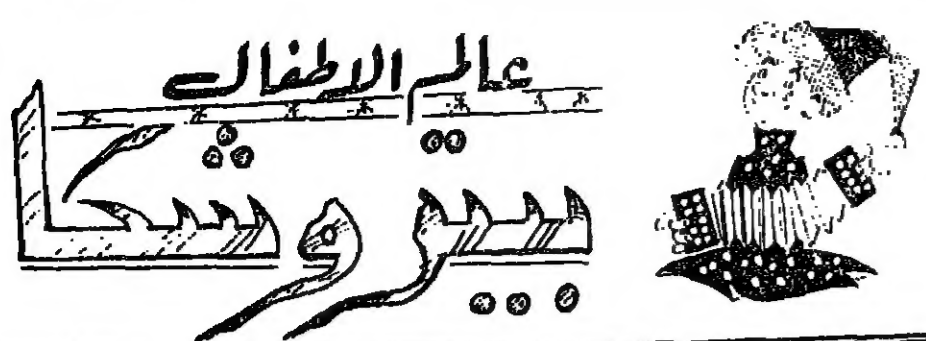 عالم الاطفال
بيتروشكا